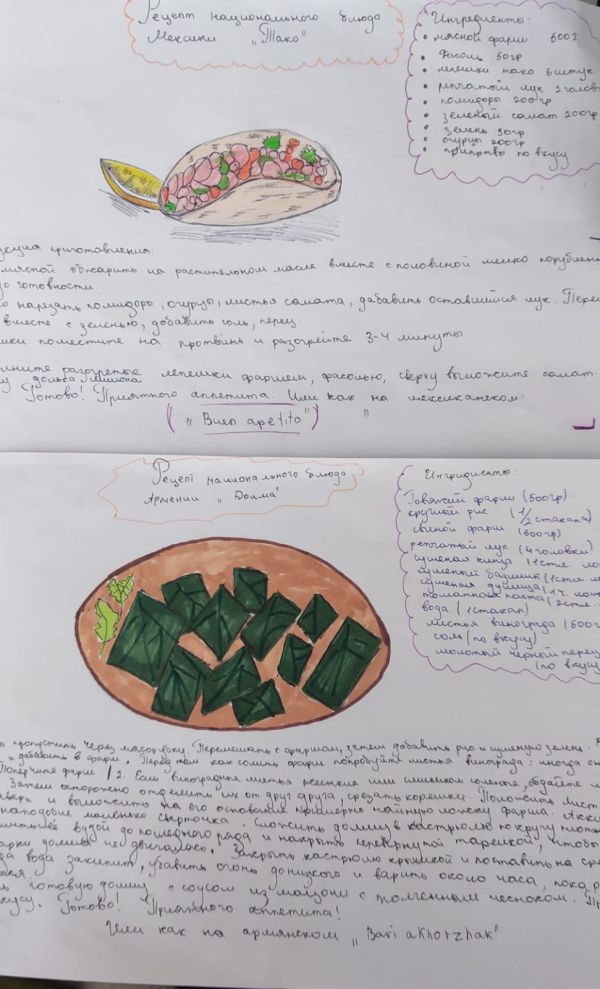 Рецепт национального блюда
Мексики „Тако"
Ингредиенты:
• мясной фарш 600г
• Фасоль 50гр
• лепешки тако 6 штук
• репчатый лук 2 голов
• помидоры 200гр
• зеленый салат 200гр
• зелень 50гр
• огурцы 200гр
• приправы по вкусу
кция приготовления:
мясной обжарить на растительном масле вместе с половиной мелко порубленн
до готовности.
о нарезать помидоры, огурцы, листья салата, добавить оставшийся лук. Пере
вместе с зеленью, добавить соль, перец.
шки поместите на противнь и разогрейте 3-4 минуты
лните разогретые лепешки фаршем, фасолью, сверху выложите салат.
у долька лимона.
Готово! Приятного аппетита. Или как на мексиканском
„Buen apetito"
Рецепт национального блюда
Армении „Долма"
Ингридиенты:
Говяжий фарш (500гр)
круглый рис (1/2 стакана)
свиной фарш (500гр)
репчатый лук (4 головки)
сушеная кинза (1 стл. ло
сушеный базилик (1 стл. л
сушеная душица (1 ч. лож
томатная паста (2 стл.
вода (1 стакан)
листья винограда (500г
соль (по вкусу)
молотый черный перец
(по вкусу)
пропустить через мясорубку. Перемешать с фаршом, затем добавить рис и сушеную зелень.
и добавить в фарш. Перед тем как солить фарш попробуйте листья винограда: иногда он
Поперчите фарш / 2. Если виноградные листья жесткие или слишком соленые, обдайте и
Затем осторожно отделить их от друг друга, срезать корешки. Положить лист
вверх и выложить на его основание примерно чайную ложку фарша. Акку
наподобие маленького сверточка. Сложить долму в кастрюлю по кругу плотн
водой до последнего ряда и накрыть перевернутой тарелкой, чтобы
арки долма не двигалась. Закрыть кастрюлю крышкой и поставить на ср
да вода закипит, убавить огонь до низкого и варить около часа, пока р
ся.
ь готовую долму с соусом из мацони с толченным чесноком. П
кусу. Готово! Приятного аппетита!
Или как на армянском „Bari akhorzhak"